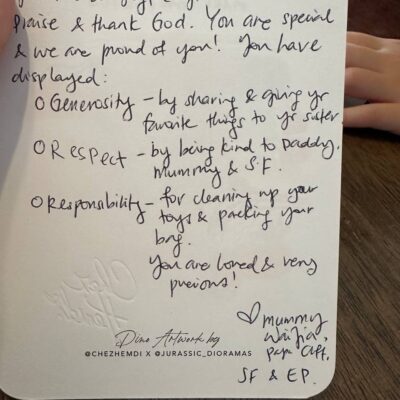 Praise & thank God. You are special
& we are proud of you! You have
displayed:
O Generosity - by sharing & giving yr
favorite things to yr sister
O Respect - by being kind to Daddy,
mummy & S.F.
O Responsibility - for cleaning up your
toys & packing your
bag.
You are loved & very
precious!
♡ mummy
papa
SF & EP.
Dino Artwork by
@CHEZHEMDI X @JURASSIC_DIORAMAS